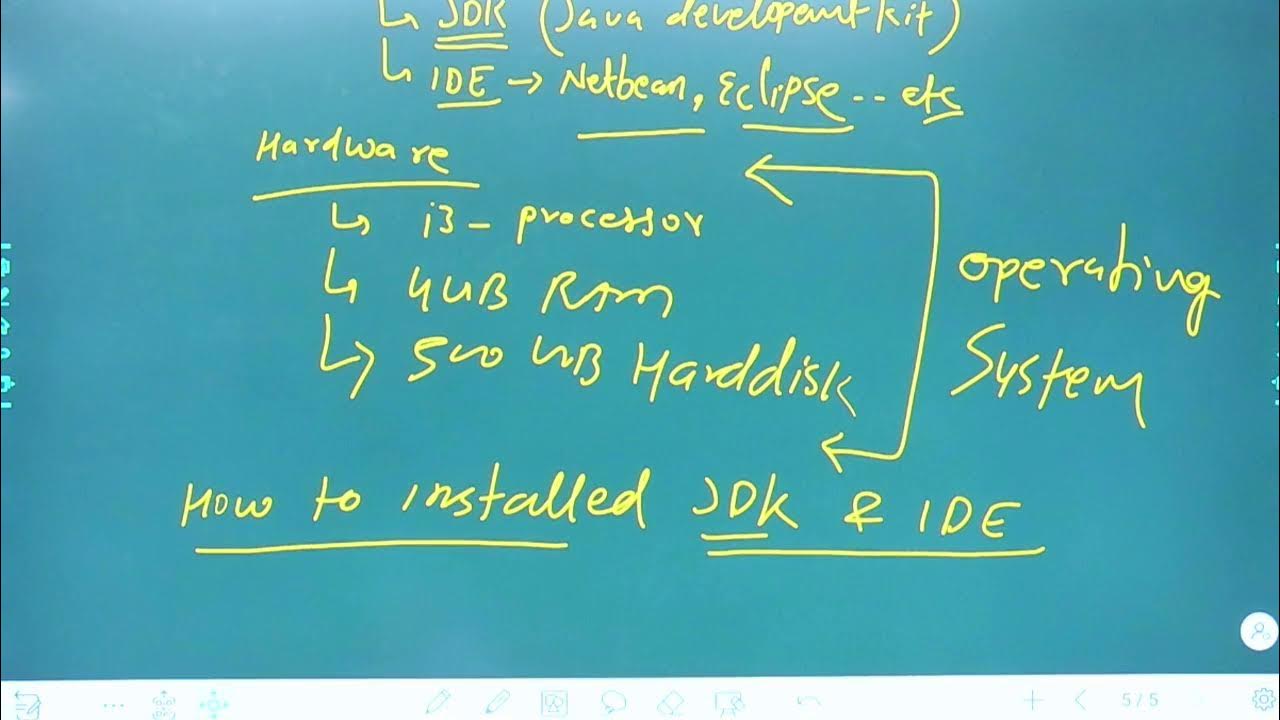 ↳ JDK (Java developemt kit)
↳ IDE → Netbean, Eclipse -- etc
Hardware
↳ i3 - processor
↳ 4GB RAM
↳ 500 GB Harddisk
Operating
System
How to installed JDK & IDE
5/5